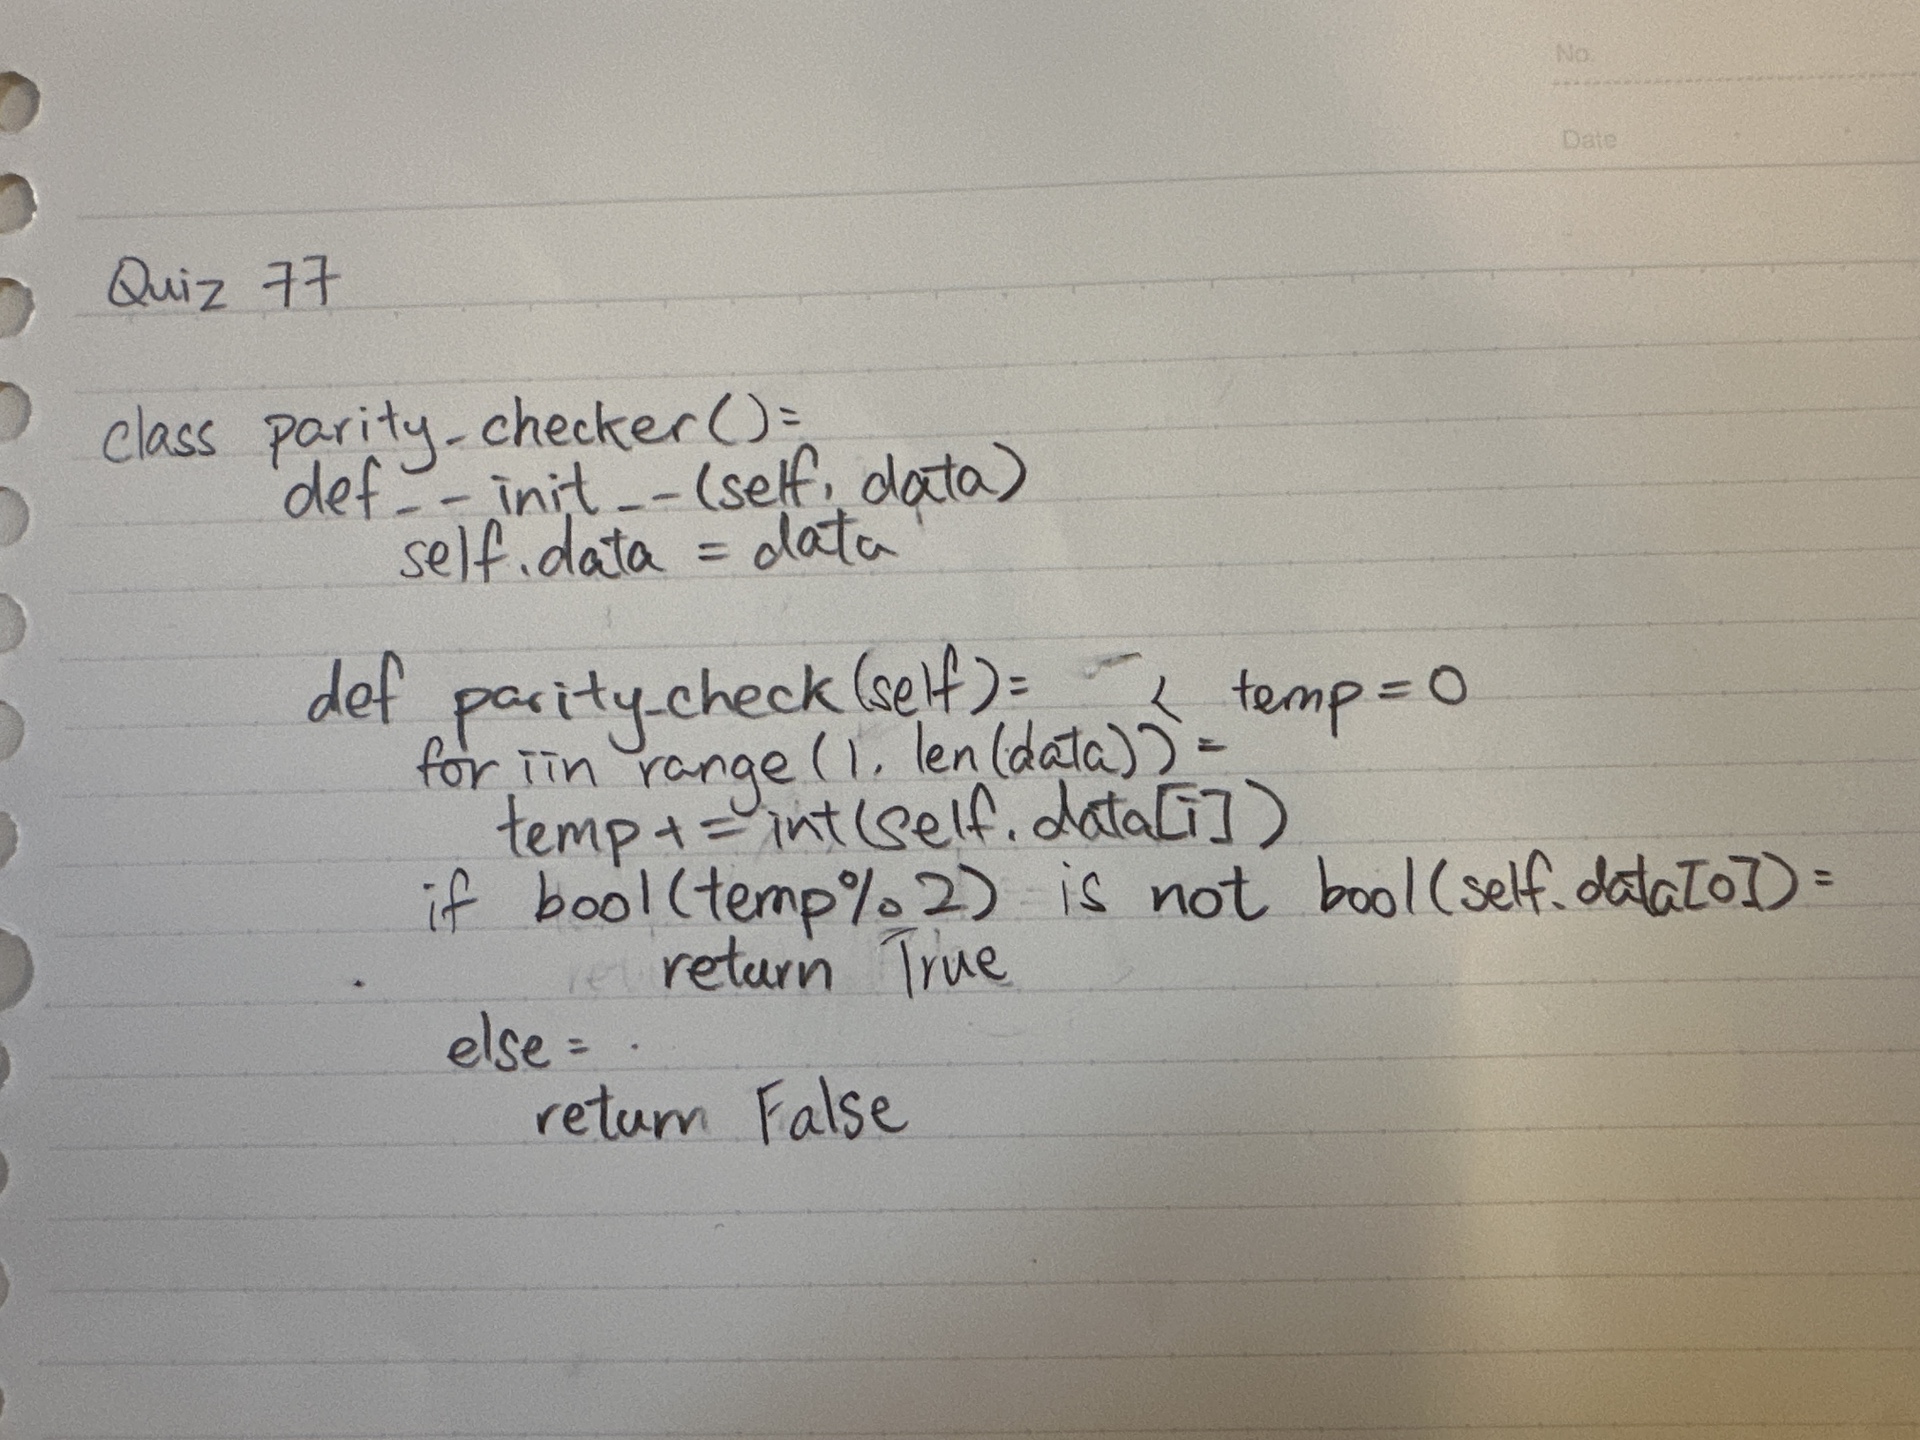 No.
Date
Quiz 77
class parity_checker():
def __init__(self, data)
self.data = data
def parity_check(self): < temp = 0
for i in range(1, len(data)):
temp += int(self.data[i])
if bool(temp%2) is not bool(self.data[0]):
return True
else:
return False